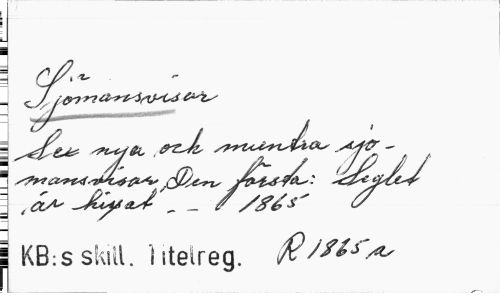 Sjömansvisor
Sex nya och muntra sjö-
mansvisor, Den första: Seglet
är hissat - - 1865
KB:s skill. Titelreg. R 1865 a